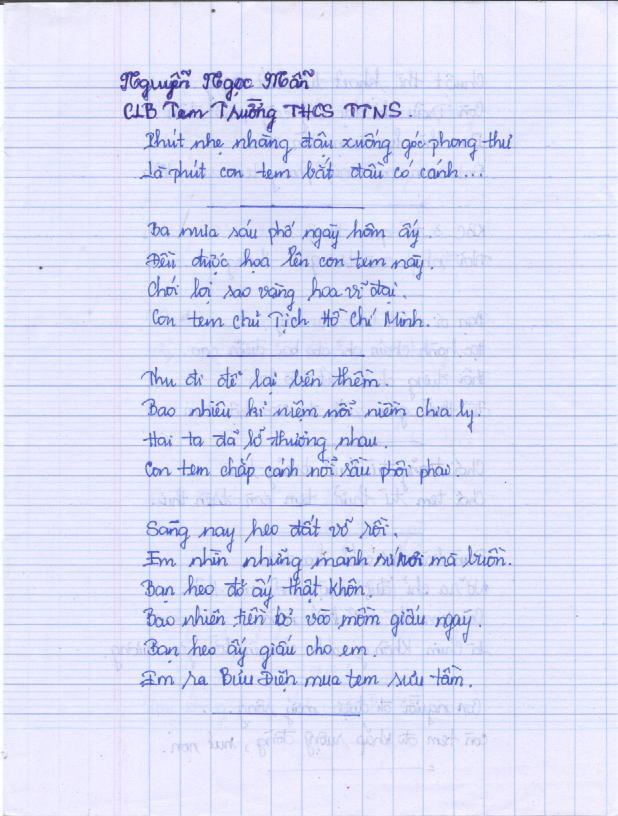 Nguyễn Ngọc Mẫn
CLB Tem Trường THCS TTNS.
Phút nhẹ nhàng đấu xuống góc phong thư
Là phút con tem bắt đầu có cánh...
Ba mưa sáu phố ngày hôm ấy.
Đều được họa lên con tem này.
Chói lọi sao vàng hoa vĩ đại.
Con tem chủ Tịch Hồ Chí Minh.
Thu đi để lại bên thềm.
Bao nhiêu kỉ niệm nỗi niềm chia ly.
Hai ta đã lỡ thương nhau.
Con tem chắp cánh nỗi sầu phôi phai.
Sáng nay heo đất vỡ rồi.
Em nhìn những mảnh sứ rơi mà buồn.
Bạn heo đó ấy thật khôn.
Bao nhiên tiền bỏ vào mồm giấu ngay.
Bạn heo ấy giấu cho em.
Em ra Bưu Điện mua tem sưu tầm.